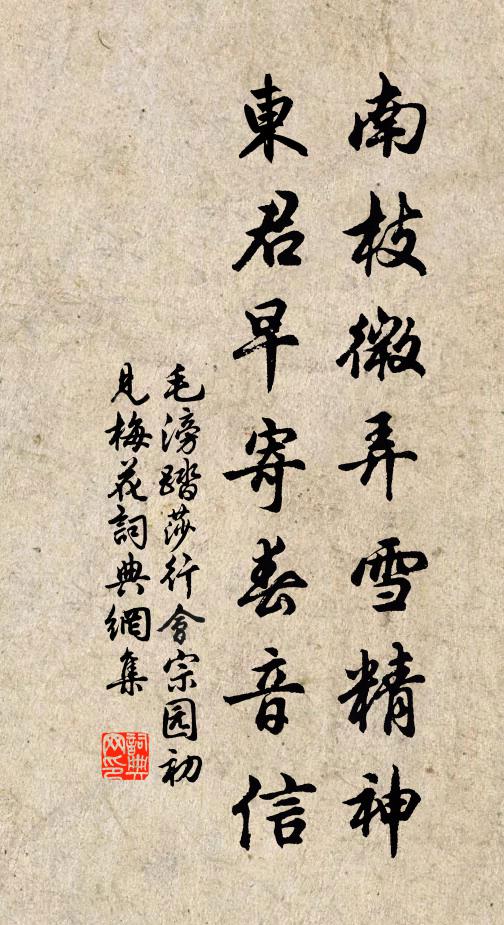 南枝微弄雪精神
東君早寄春音信
毛滂踏莎行會宗园初
見梅花詞典網集
詞典
网印